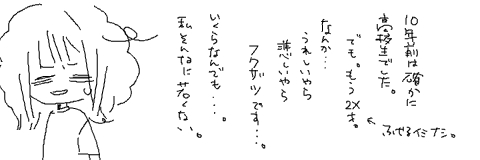 10年前は確かに
高校生でした。
でも。もう2X才。
←ふせるイミナシ。
なんか…
うれしいやら
悲しいやら
フクザツです…。
いくらなんでも…。
私そんなに若くない。